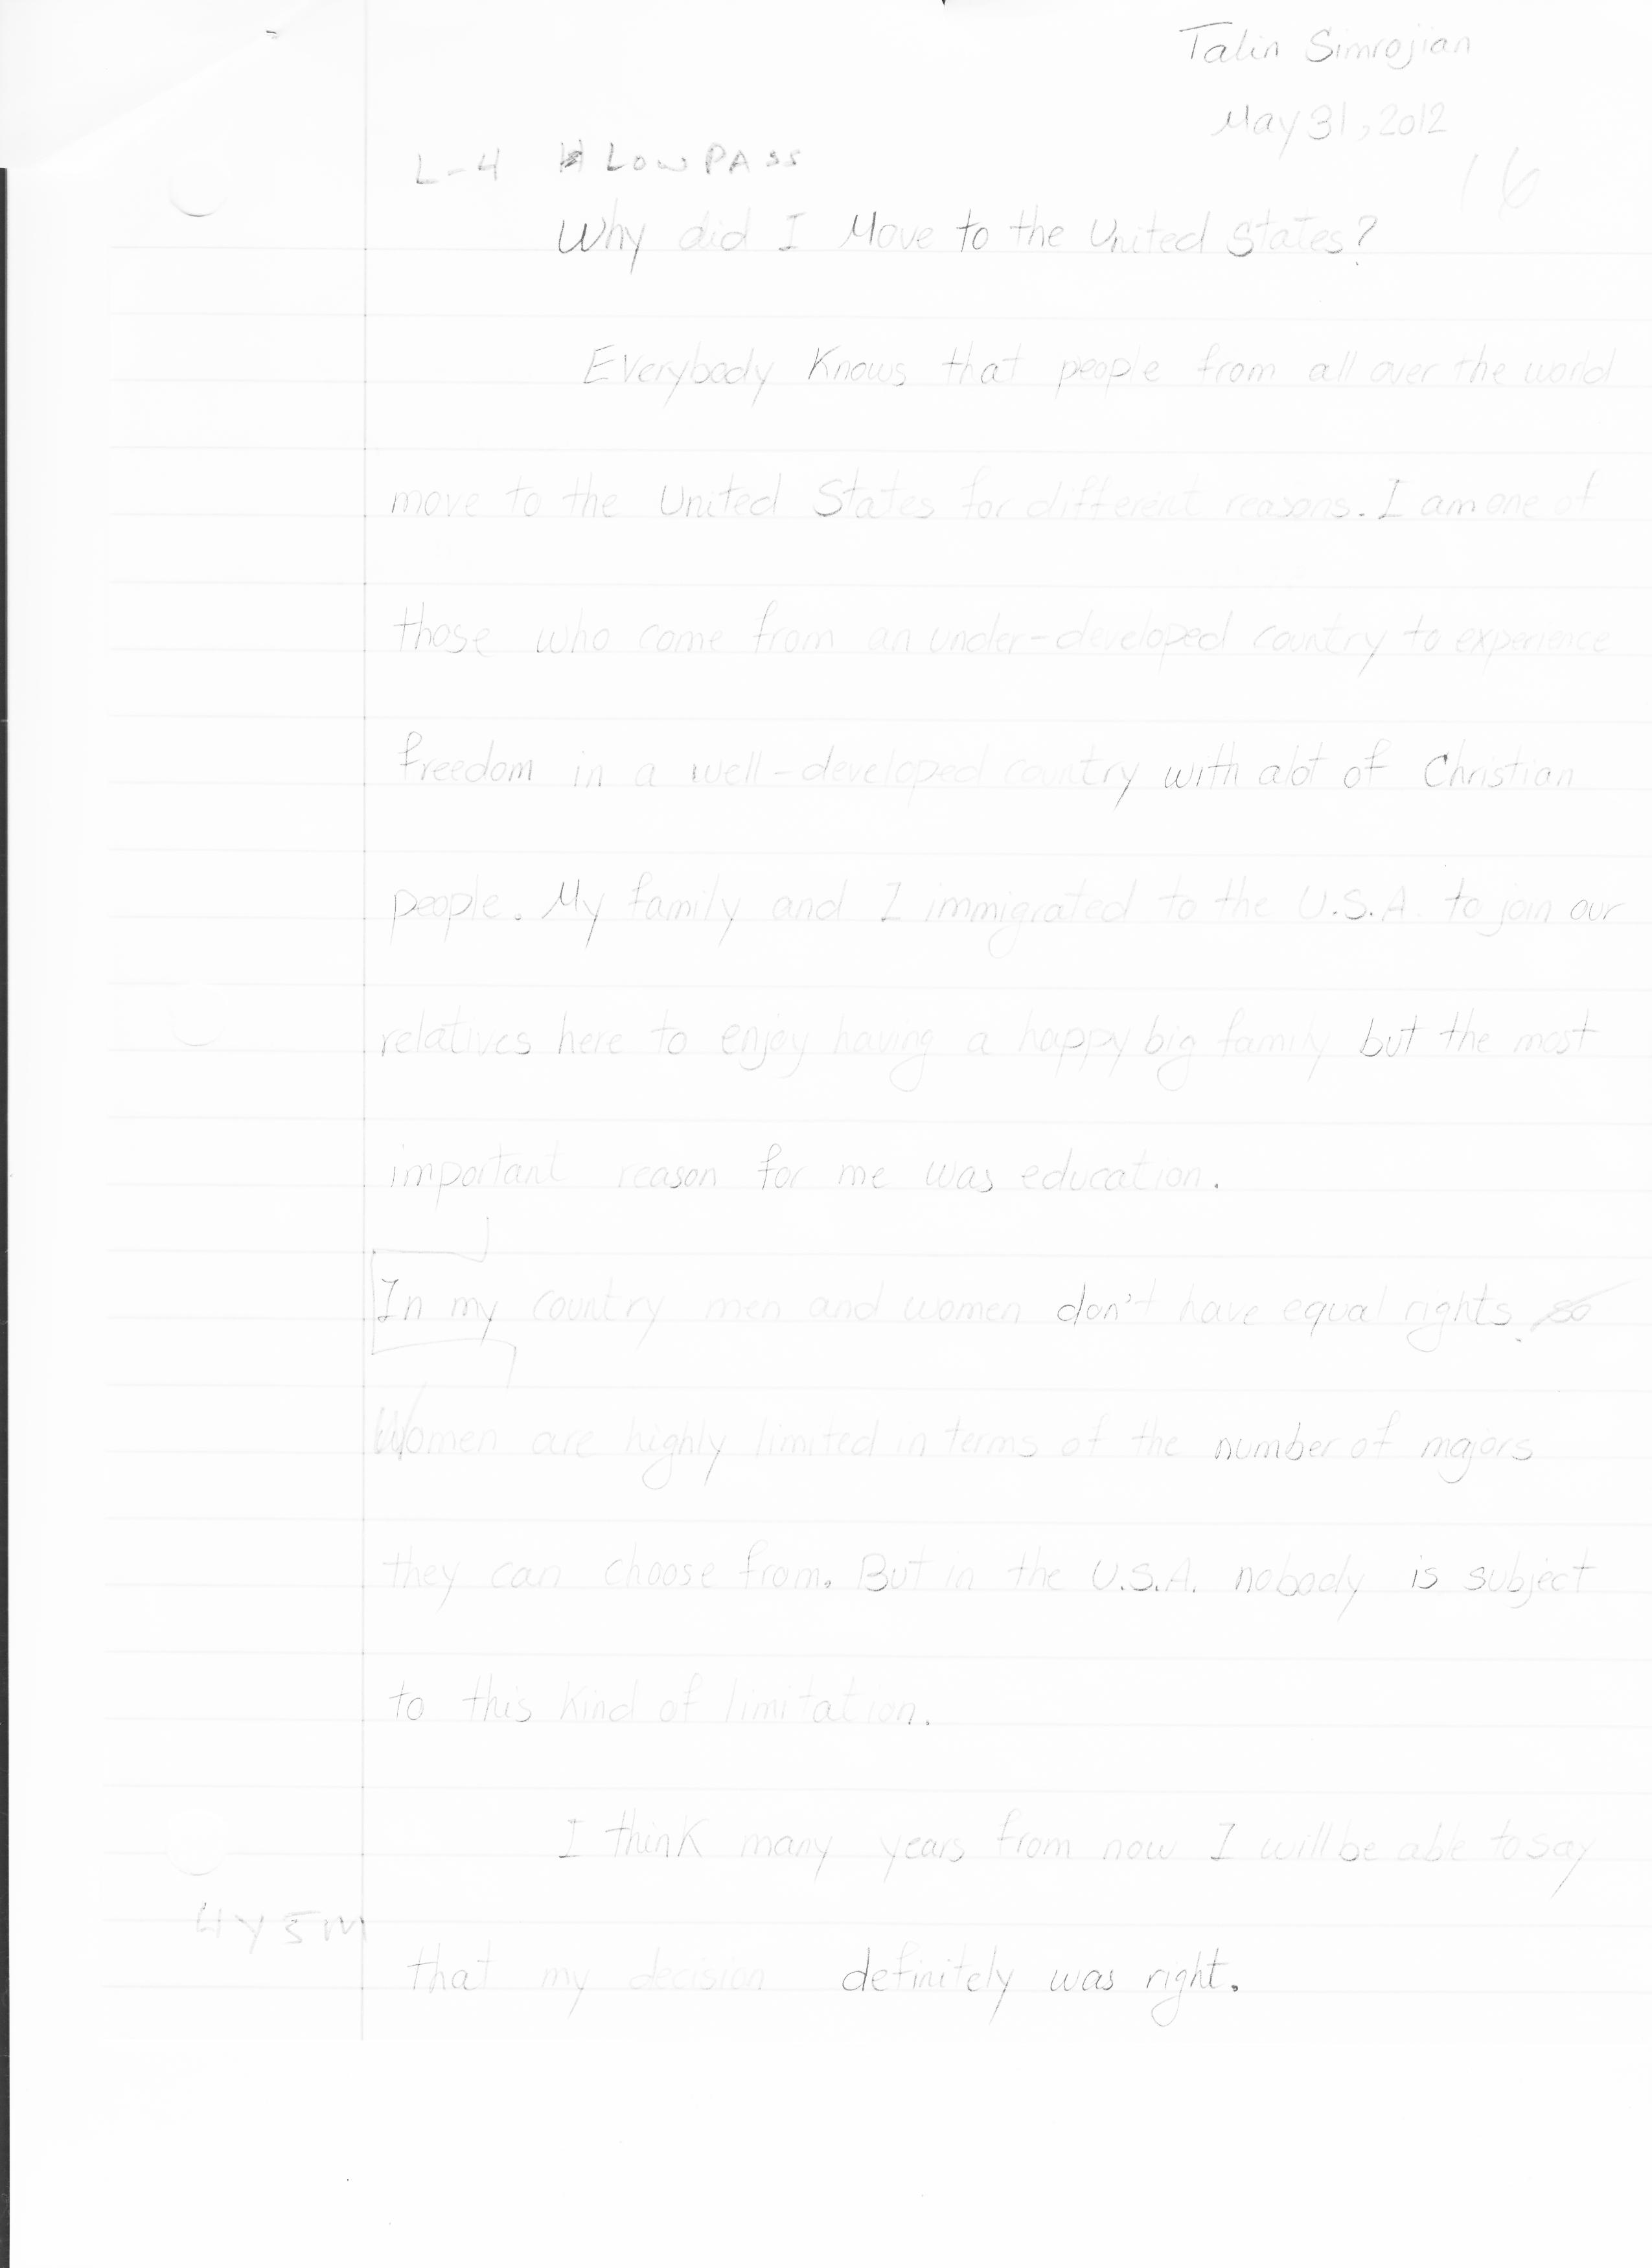 Talin Simrojian
May 31, 2012
L-4 LOW PASS
16
Why did I Move to the United States?
Everybody Knows that people from all over the world
move to the United States for different reasons. I am one of
those who come from an under-developed country to experience
freedom in a well-developed country with alot of Christian
people. My family and I immigrated to the U.S.A. to join our
relatives here to enjoy having a happy big family but the most
important reason for me was education.
In my country men and women don't have equal rights. so
Women are highly limited in terms of the number of majors
they can choose from. But in the U.S.A. nobody is subject
to this kind of limitation.
I think many years from now I will be able to say
4y5m
that my decision definitely was right.